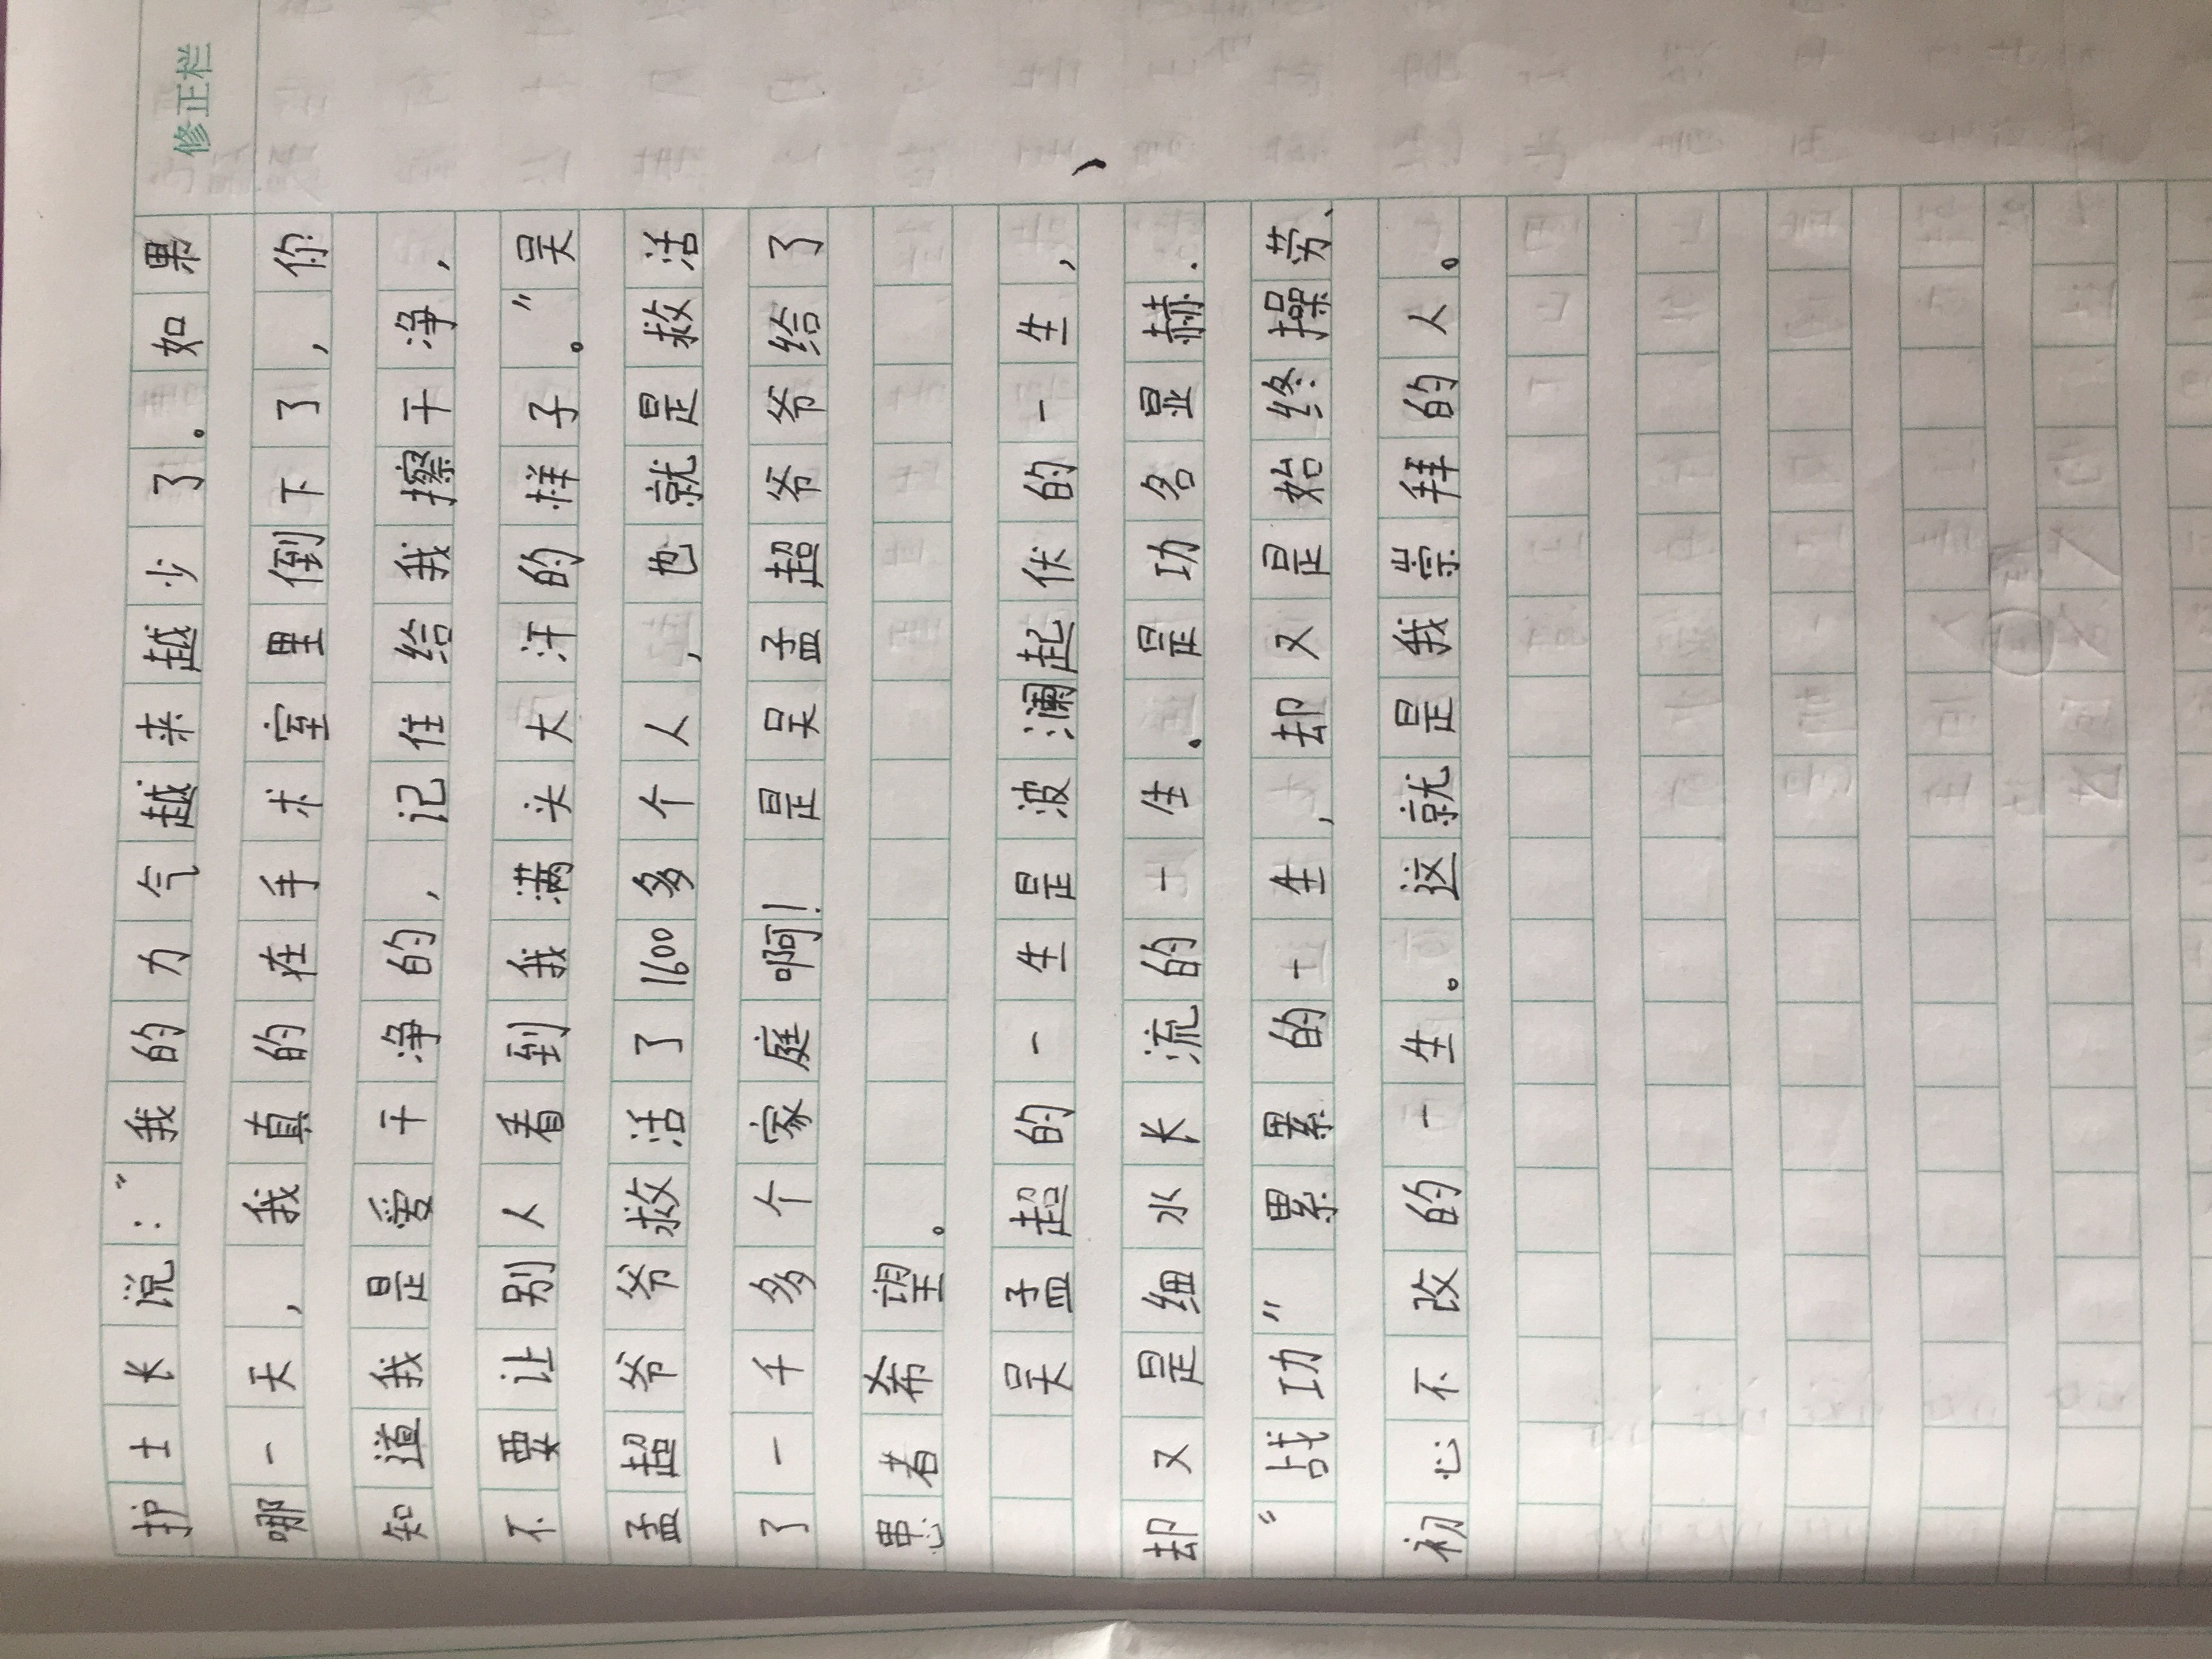 修正栏
护士长说：“我的力气越来越少了。如果
哪一天，我真的在手术室里倒下了，你
知道我是爱干净的，记住给我擦干净，
不要让别人看到我满头大汗的样子。”吴
孟超爷爷救活了1600多个人，也就是救活
了一千多个家庭啊！是吴孟超爷爷给了
患者希望。
吴孟超的一生是波澜起伏的一生，
却又是细水长流的一生。是功名显赫.
“战功”累累的一生，却又是始终操劳、
初心不改的一生。这就是我崇拜的人。